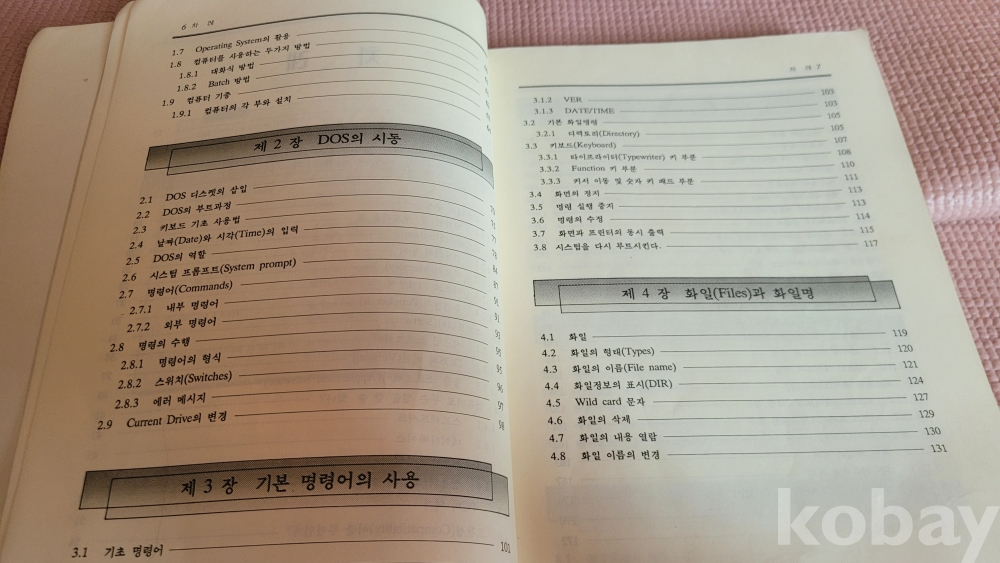 6 차 례
1.7 Operating System의 활용
1.8 컴퓨터를 사용하는 두가지 방법
1.8.1 대화식 방법
1.8.2 Batch 방법
1.9 컴퓨터 기종
1.9.1 컴퓨터의 각 부와 설치
제 2 장 DOS의 시동
2.1 DOS 디스켓의 삽입
2.2 DOS의 부트과정 70
2.3 키보드 기초 사용법
2.4 날짜(Date)와 시각(Time)의 입력
2.5 DOS의 역할 78
2.6 시스팀 프롬프트(System prompt) 84
2.7 명령어(Commands) 87
2.7.1 내부 명령어 91
2.7.2 외부 명령어 91
2.8 명령의 수행 93
2.8.1 명령어의 형식 95
2.8.2 스위치(Switches) 95
2.8.3 에러 메시지 96
2.9 Current Drive의 변경 97
98
제 3 장 기본 명령어의 사용
3.1 기초 명령어 101
차 례 7
3.1.2 VER 103
3.1.3 DATE/TIME 103
3.2 기본 화일명령 105
3.2.1 디렉토리(Directory) 105
3.3 키보드(Keyboard) 107
3.3.1 타이프라이터(Typewriter) 키 부분 108
3.3.2 Function 키 부분 110
3.3.3 커서 이동 및 숫자 키 패드 부분 111
3.4 화면의 정지 113
3.5 명령 실행 중지 113
3.6 명령의 수정 114
3.7 화면과 프린터의 동시 출력 115
3.8 시스팀을 다시 부트시킨다. 117
제 4 장 화일(Files)과 화일명
4.1 화일 119
4.2 화일의 형태(Types) 120
4.3 화일의 이름(File name) 121
4.4 화일정보의 표시(DIR) 124
4.5 Wild card 문자 127
4.6 화일의 삭제 129
4.7 화일의 내용 열람 130
4.8 화일 이름의 변경 131
kobay